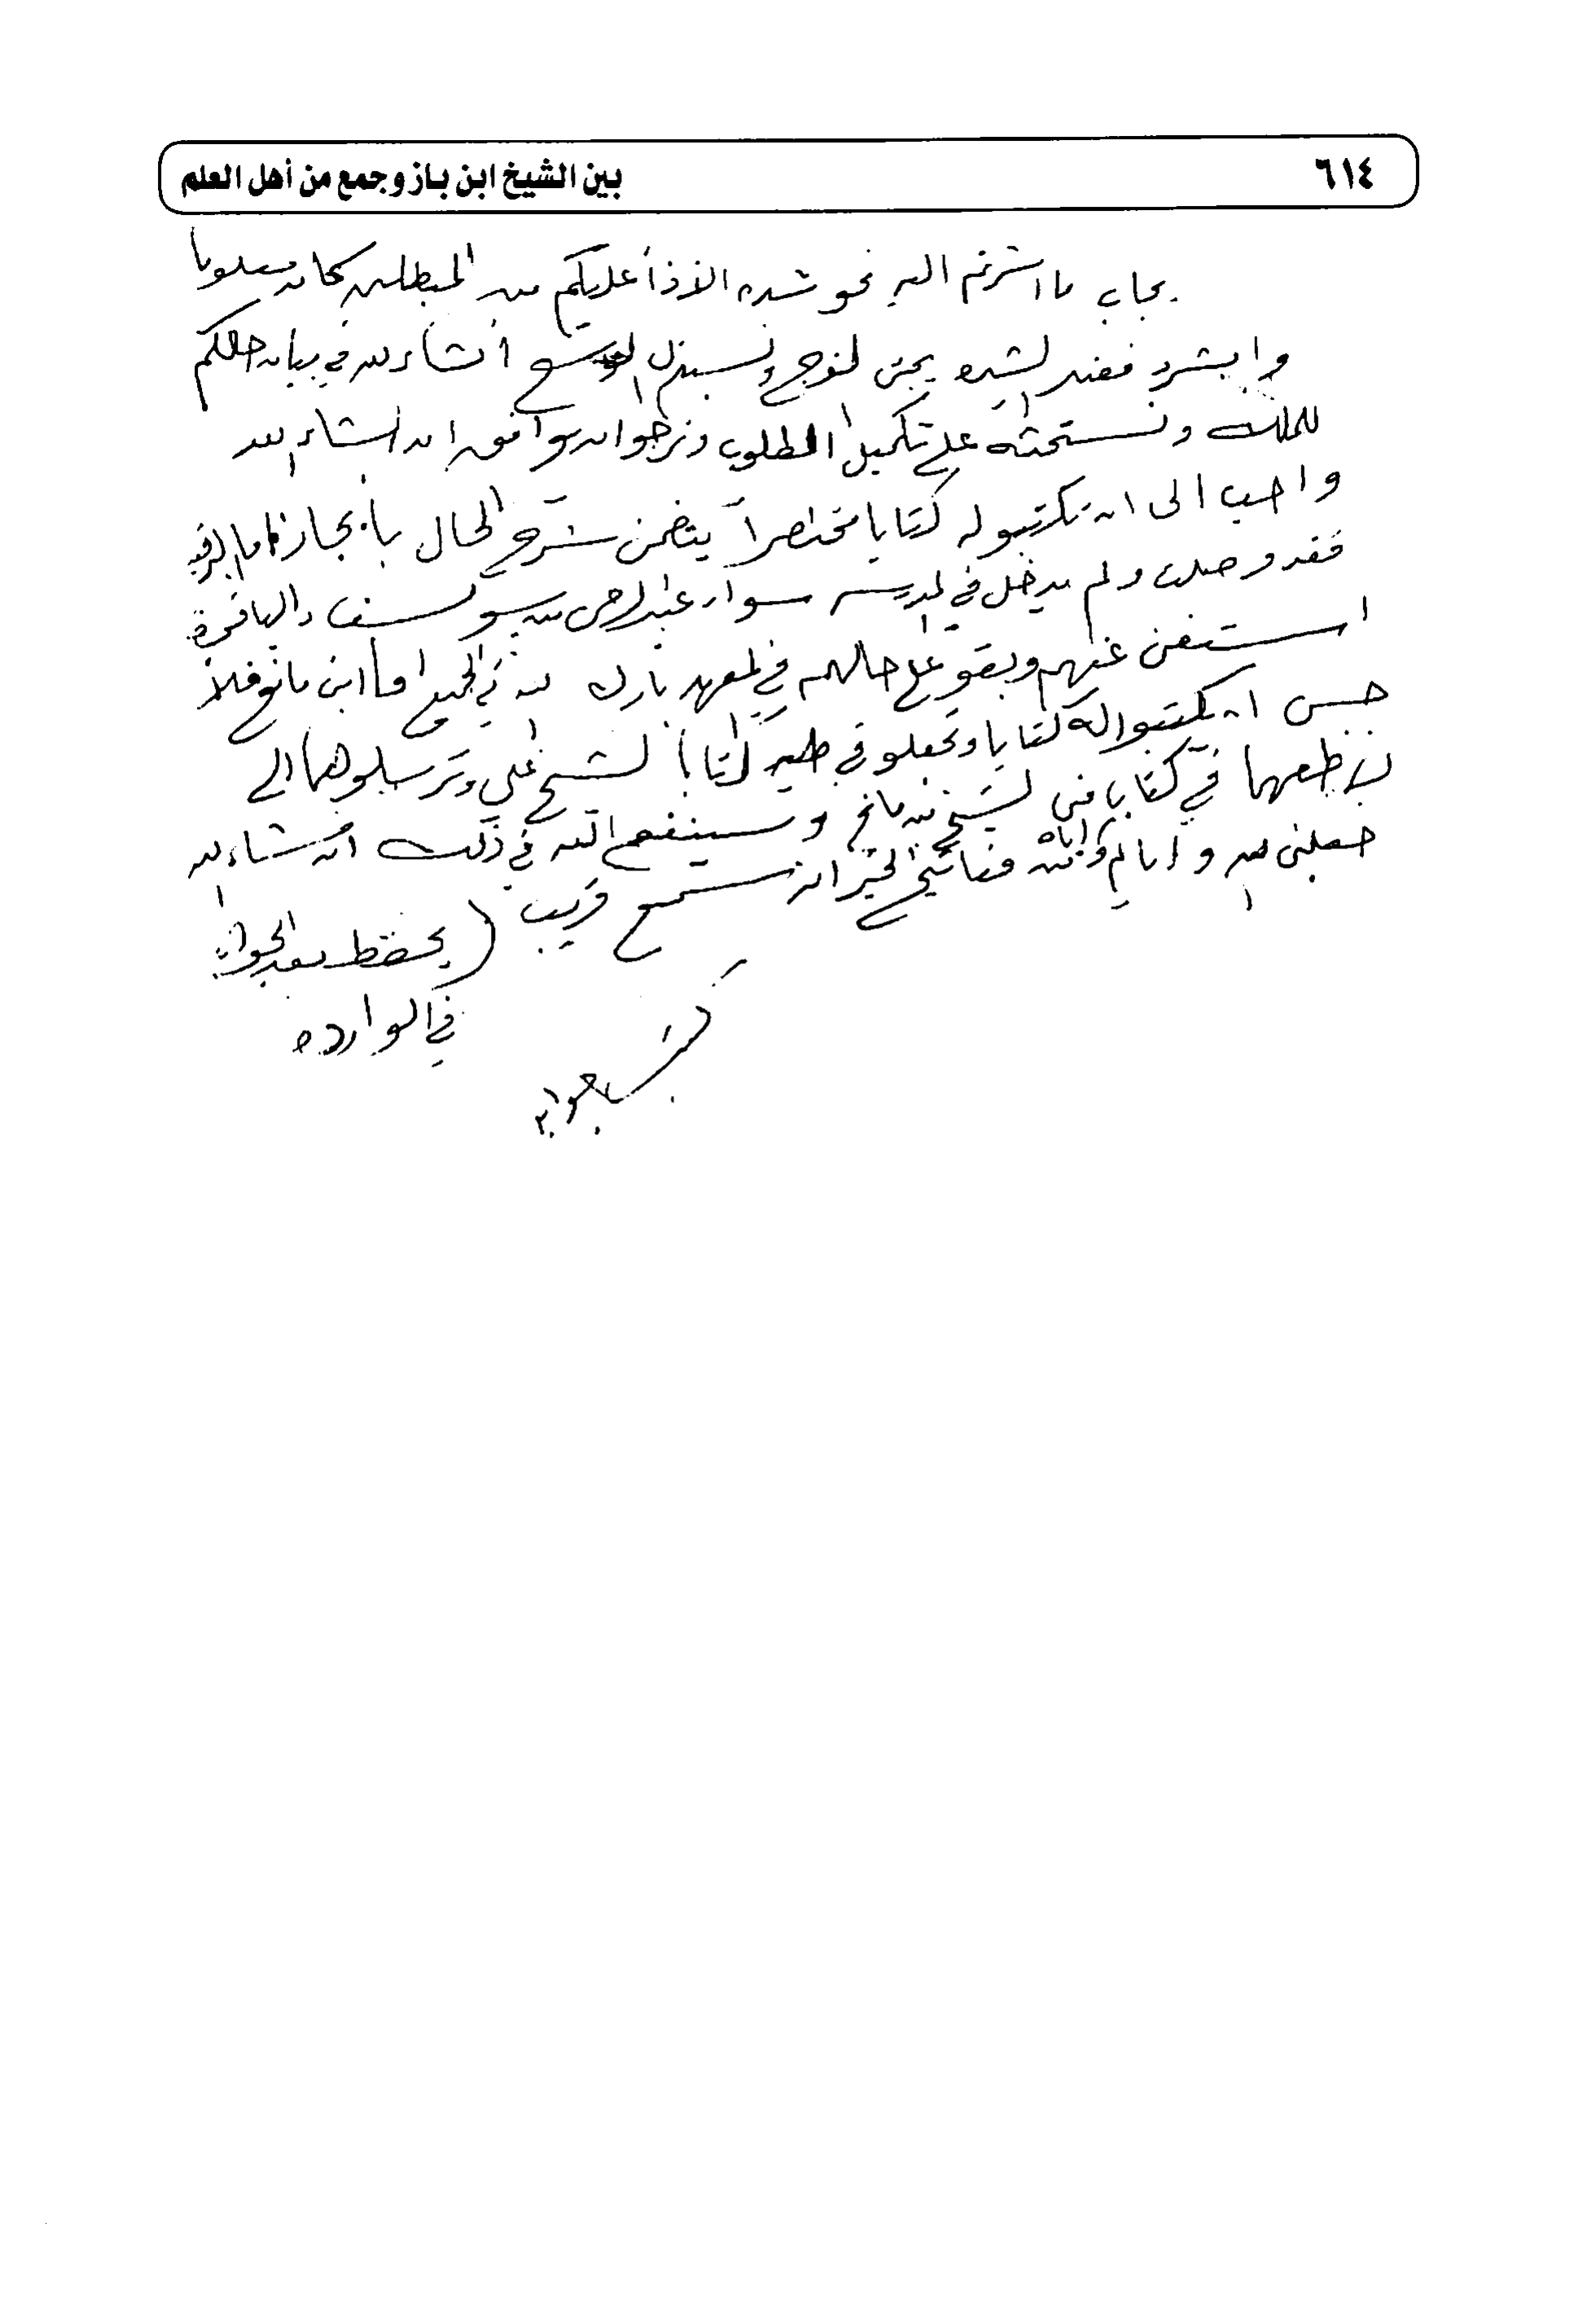 ٦١٤
بين الشيخ ابن باز وجمع من أهل العلم
يجاب ما اشرتم اليه نحو شده الأذا عليكم من المبطلين كان معلوما
وابشرو فعند الشده يجئ الفرج وسنبذل الوسع انشاء الله في بيان حالكم
للملك ونستحثه على تكميل المطلوب ونرجوا ان يوافق ان انشاء الله
واحب الى ان تكتبو له كتابا مختصراً يتضمن شرح الحال بأيجاز اما البرقيه
فقد وصلت ولم يدخل في المدرسه سوا عبد الرحمن بن يوسف والباقي
استغنى عنهم وبقو على حالهم في المعهد بارك الله في الجميع اما ابن مانع فلا
حسن ان تكتبوا له كتابا وتجعلو في طيه كتابا للشيخ علي وترسلوهما الي
لأضعهما في كتابا مني للشيخ بن مانع وسينفع الله في ذلك ان شاء الله
جعلني الله واياكم واياه مفاتيح الخير انه سميع قريب
(يحفظ بعد الجواب
في الوارده
كتب جوابه